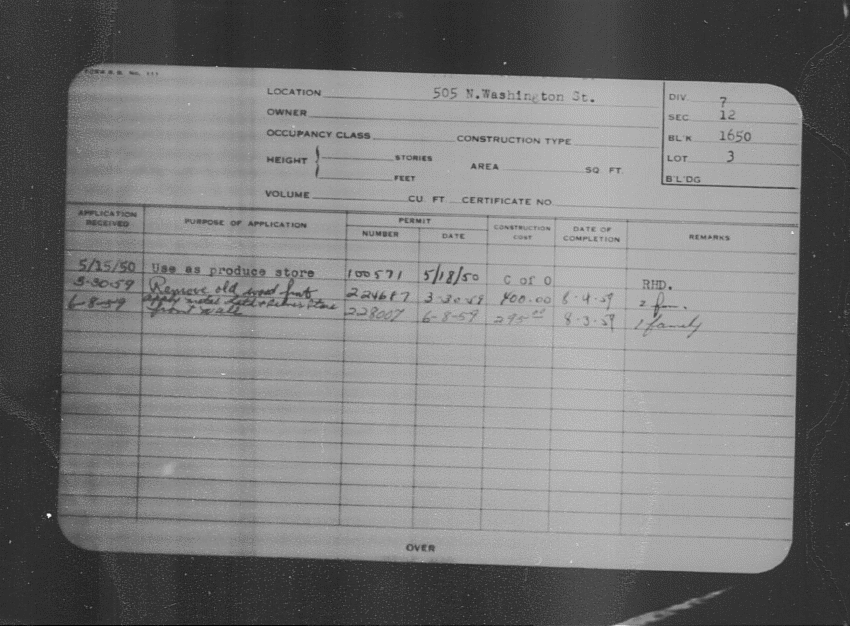 FORM B.B. No. 111
LOCATION 505 N.Washington St.
OWNER
OCCUPANCY CLASS CONSTRUCTION TYPE
HEIGHT STORIES FEET AREA SQ FT.
VOLUME CU. FT. CERTIFICATE NO.
DIV. 7
SEC 12
BL'K 1650
LOT 3
B'L'DG
APPLICATION RECEIVED PURPOSE OF APPLICATION PERMIT NUMBER DATE CONSTRUCTION COST DATE OF COMPLETION REMARKS
5/15/50 Use as produce store 100571 5/18/50 C of O RHD.
3-30-59 Remove old wood front 224687 3-30-59 400.00 6-4-59 2 fam.
6-8-59 apply metal Lath & Perma Stone front wall 228007 6-8-59 295.00 8-3-59 1 family
OVER